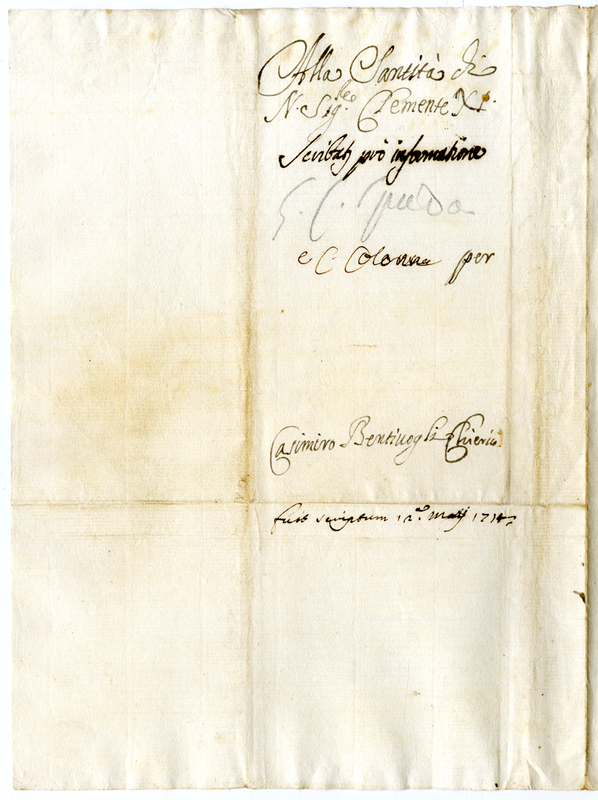 Alla Santità di
N. Sig.re Clemente XI.
Scribat pro informatione
S. C.
e C. Colonna per
Casimiro Bentivogli Chierico
fuit scriptum 12.a Maij 1714